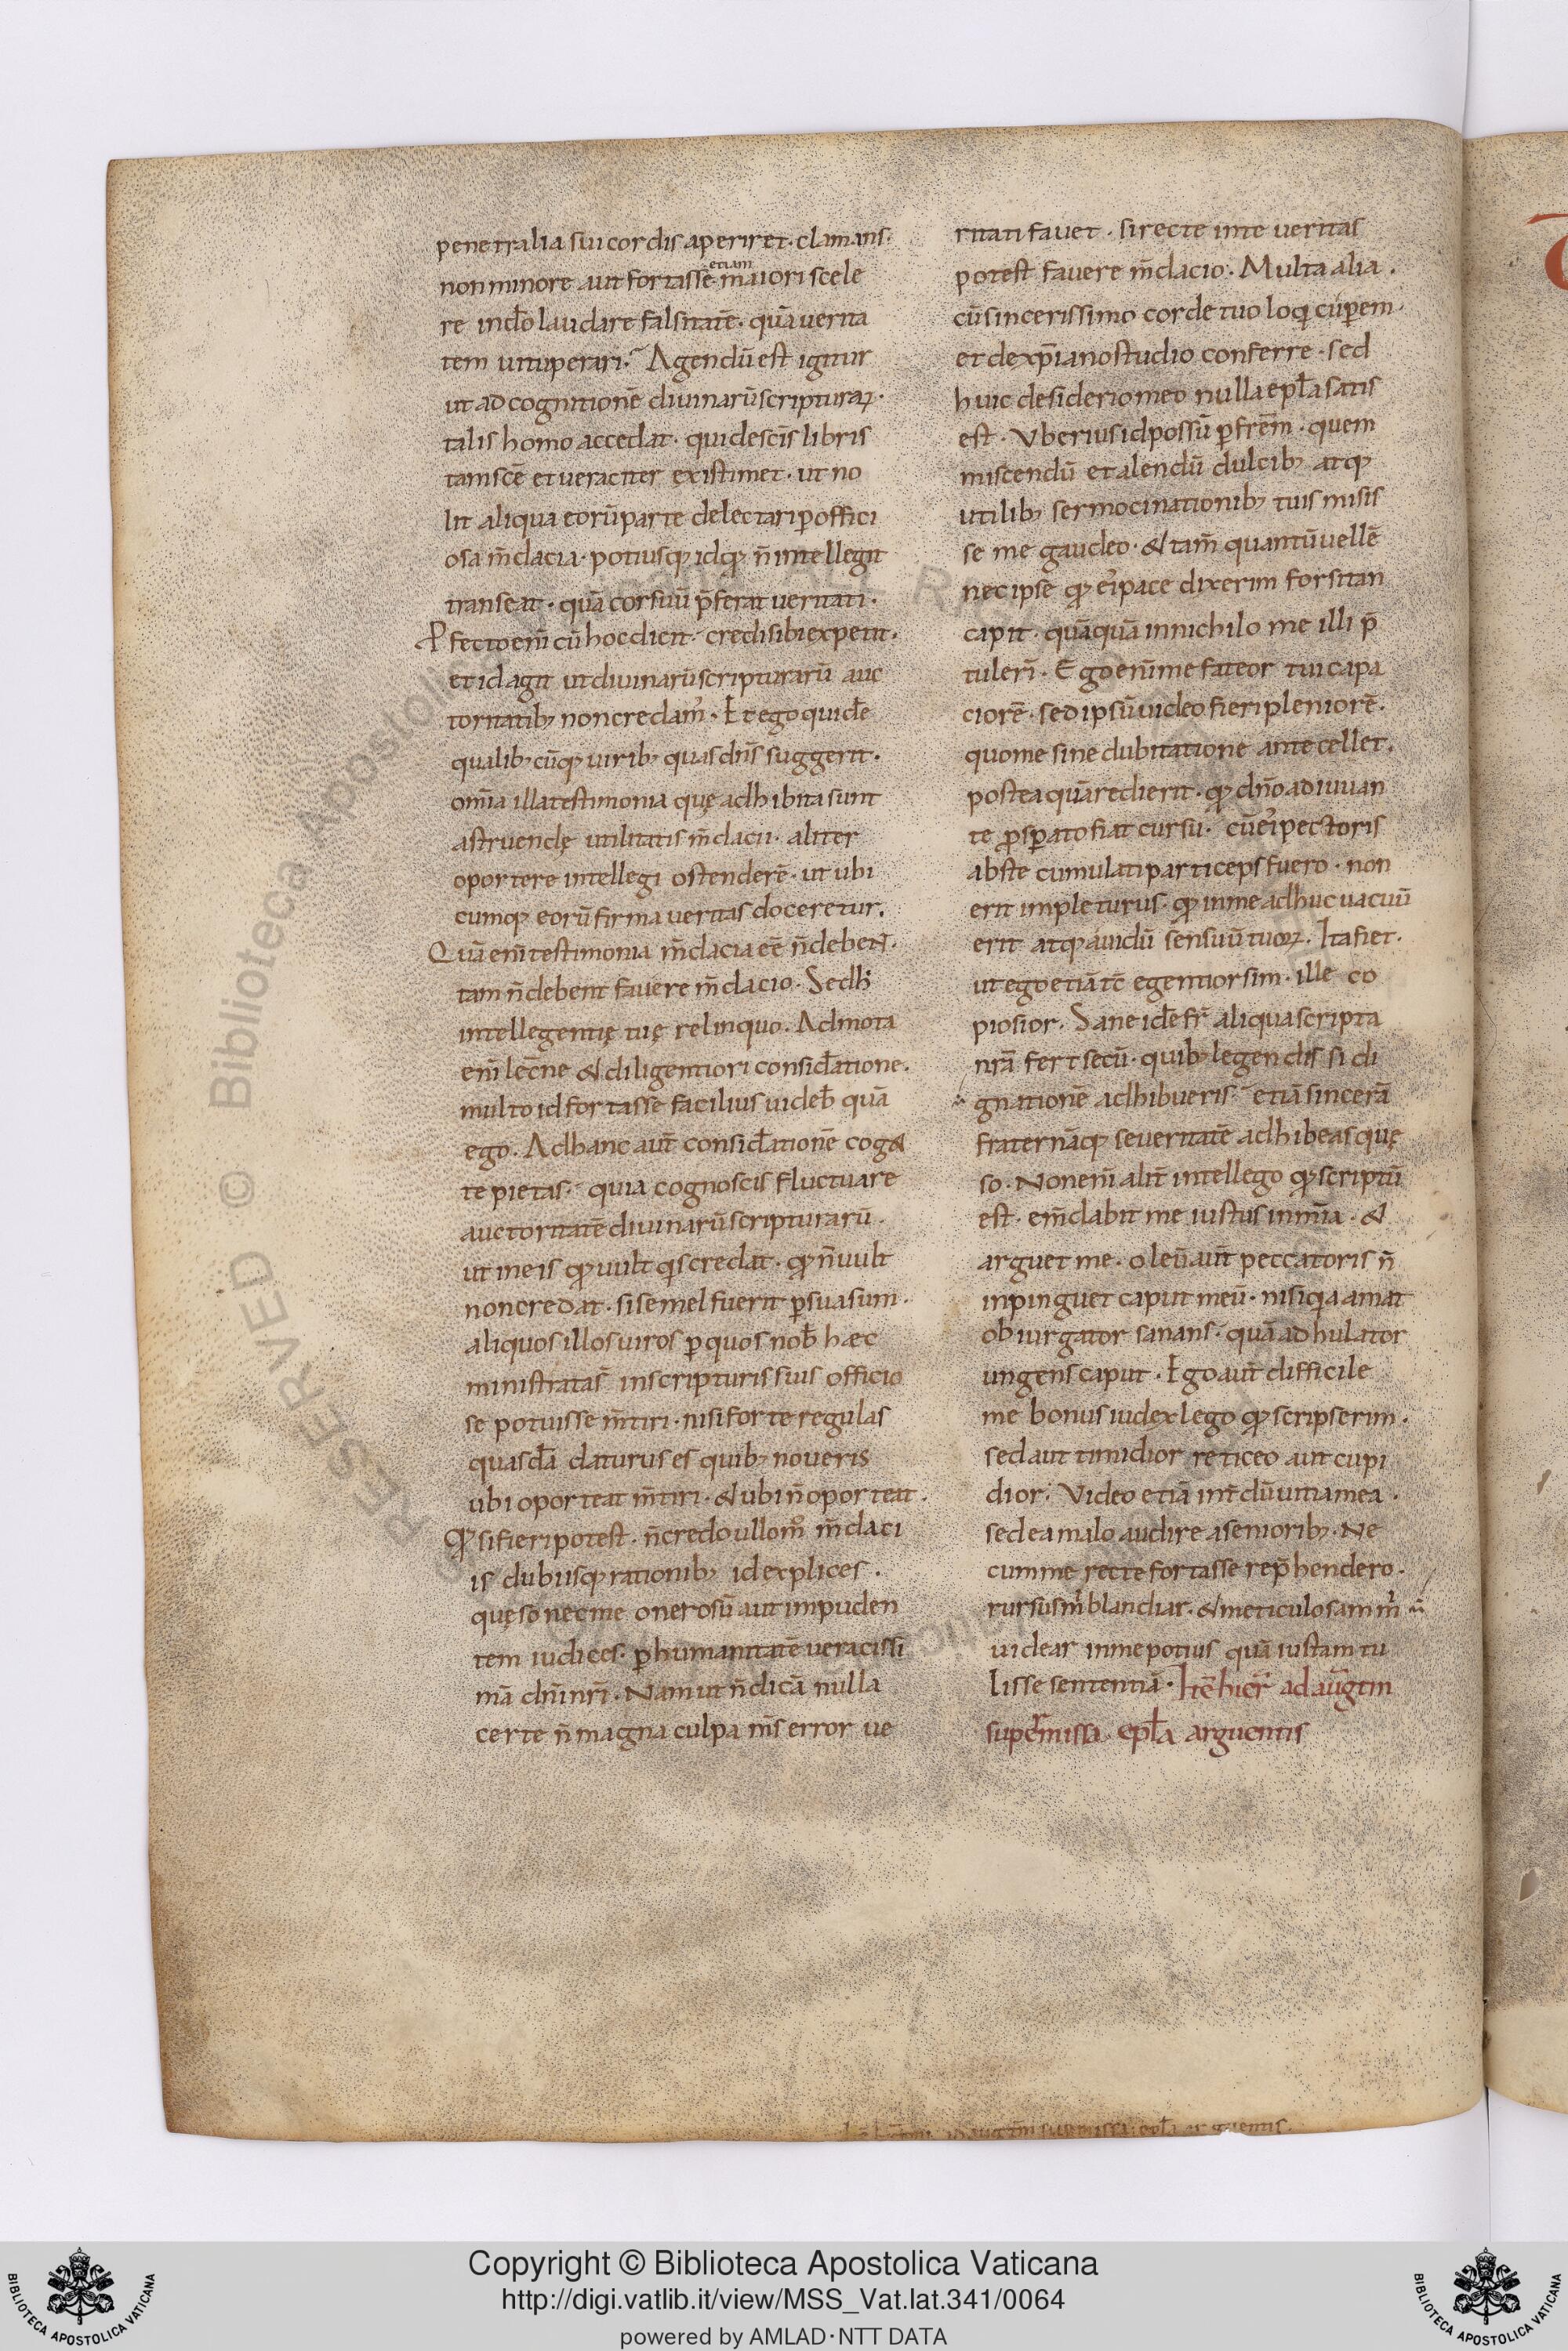 penetralia sui cordis aperiret· clamans·
non minore aut fortasse etiam maiori scele
re in dō laudare falsitatē· quā uerita
tem uituperari? Agendū est igitur
ut ad cognitionē diuinarū scripturaꝝ·
talis homo accedat· qui de scīs libris
tam scē et ueraciter existimet· ut no
lit aliqua eorū parte delectari ꝑ offici
osa m̄dacia· potiusq; id q; n̄ intellegit
transeat· quā cor suū p̄ferat ueritati·
Ꝓfecto eni̅ cū hoc dicit· credi sibi expetit·
et id agit ut diuinarū scripturarū auc
toritatib; non credam᾽· Et ego quidē
qualib; cūq; uirib; quas dn̄s suggerit·
om̄ia illa testimonia quę adhibita sunt
astruendę utilitatis m̄dacii· aliter
oportere intellegi ostenderē· ut ubi
cumq; eorū firma ueritas doceretur·
Quā eni̅ testimonia m̄dacia eē n̄ debent·
tam n̄ debent fauere m̄dacio· Sed h᾽
intellegentię tuę relinquo· Admota
eni̅ lec̄ne & diligentiori considatione·
multo id fortasse facilius uideb̄ quā
ego· Ad hanc aut̄ considationē cog&
te pietas· qua cognoscis fluctuare
auctoritatē diuinarū scripturarū·
ut in eis q; uult qs credat· q; n̄ uult
non credat· si semel fuerit ꝑsuasum·
aliquos illos uiros ꝑ quos nob̄ hæc
ministrata s̄ in scripturis suis officio
se potuisse m̄tiri· nisi forte regulas
quasdā daturus es quib; noueris
ubi oporteat m̄tiri· & ubi n̄ oporteat·
Q; si fieri potest· n̄ credo ullo m̊ m̄daci
is dubiisq; rationib; id explices·
quęso nec me onerosū aut impuden
tem iudices· ꝑ humanitatē ueracissi
mā dn̄i nr̄i· Nam ut n̄ dicā nulla
certe n̄ magna culpa m̄s error ue
ritati fauet· si recte in te ueritas
potest fauere m̄dacio· Multa alia·
cū sincerissimo corde tuo loqi cuꝑem·
et de xp̄iano studio conferre· sed
huic desiderio meo nulla epl̄a satis
est· Vberius id possū ꝑ frēm· quem
miscendū et alendū dulcib; atq;
utilib; sermocinationib; tuis misis
se me gaudeo· & tam̄ quantū uellē
nec ipse q; ei᾽ pace dixerim forsitan
capit· quāquā in nichilo me illi p̄
tulerī· Ego eni̅ me fateor tui capa
ciorē· sed ipsū uideo fieri pleniorē·
quo me sine dubitatione antecellet·
postea quā redierit· q; dn̄o adiuuan
te ꝓsꝑato fiat cursu· cū ei᾽ pectoris
abs te cumulati particeps fuero· non
erit impleturus· q; in me adhuc uacuū
erit atq; auidū sensuū tuoꝝ· Ita fiet·
ut ego etiā tc̄ egentior sim· ille co
piosior· Sane idē fr̄ aliqua scripta
nr̄a fert secū· quib; legendis si di
gnationē adhibueris· etiā sincerā
fraternāq; seueritatē adhibeas quę
so· Non eni̅ alit̄ intellego q; scriptū
est· em̄dabit me iustus in mīa· &
arguet me· oleū aut̄ peccatoris n̄
inpinguet caput meū· nisi qa amat
obiurgator sanans· quā adhulator
ungens caput· Ego aut̄ difficile
me bonus iudex lego q; scripserim·
sed aut timidior reticeo aut cupi
dior· Video etiā int̄dū uitia mea·
sed ea malo audire a senioribꝫ· Ne
cum me recte fortasse rep̄hendero·
rursus m̄ blandiar· & meticulosam m̄
uidear in me potius quā iustam tu
lisse sententiā· Ite᷃ hier᷃ ad aug᷃tm
sup᷃missa epl̄a arguentis
Copyright © Biblioteca Apostolica Vaticana
http://digi.vatlib.it/view/MSS_Vat.lat.341/0064
powered by AMLAD·NTT DATA
BIBLIOTECA APOSTOLICA VATICANA
BIBLIOTECA APOSTOLICA VATICANA